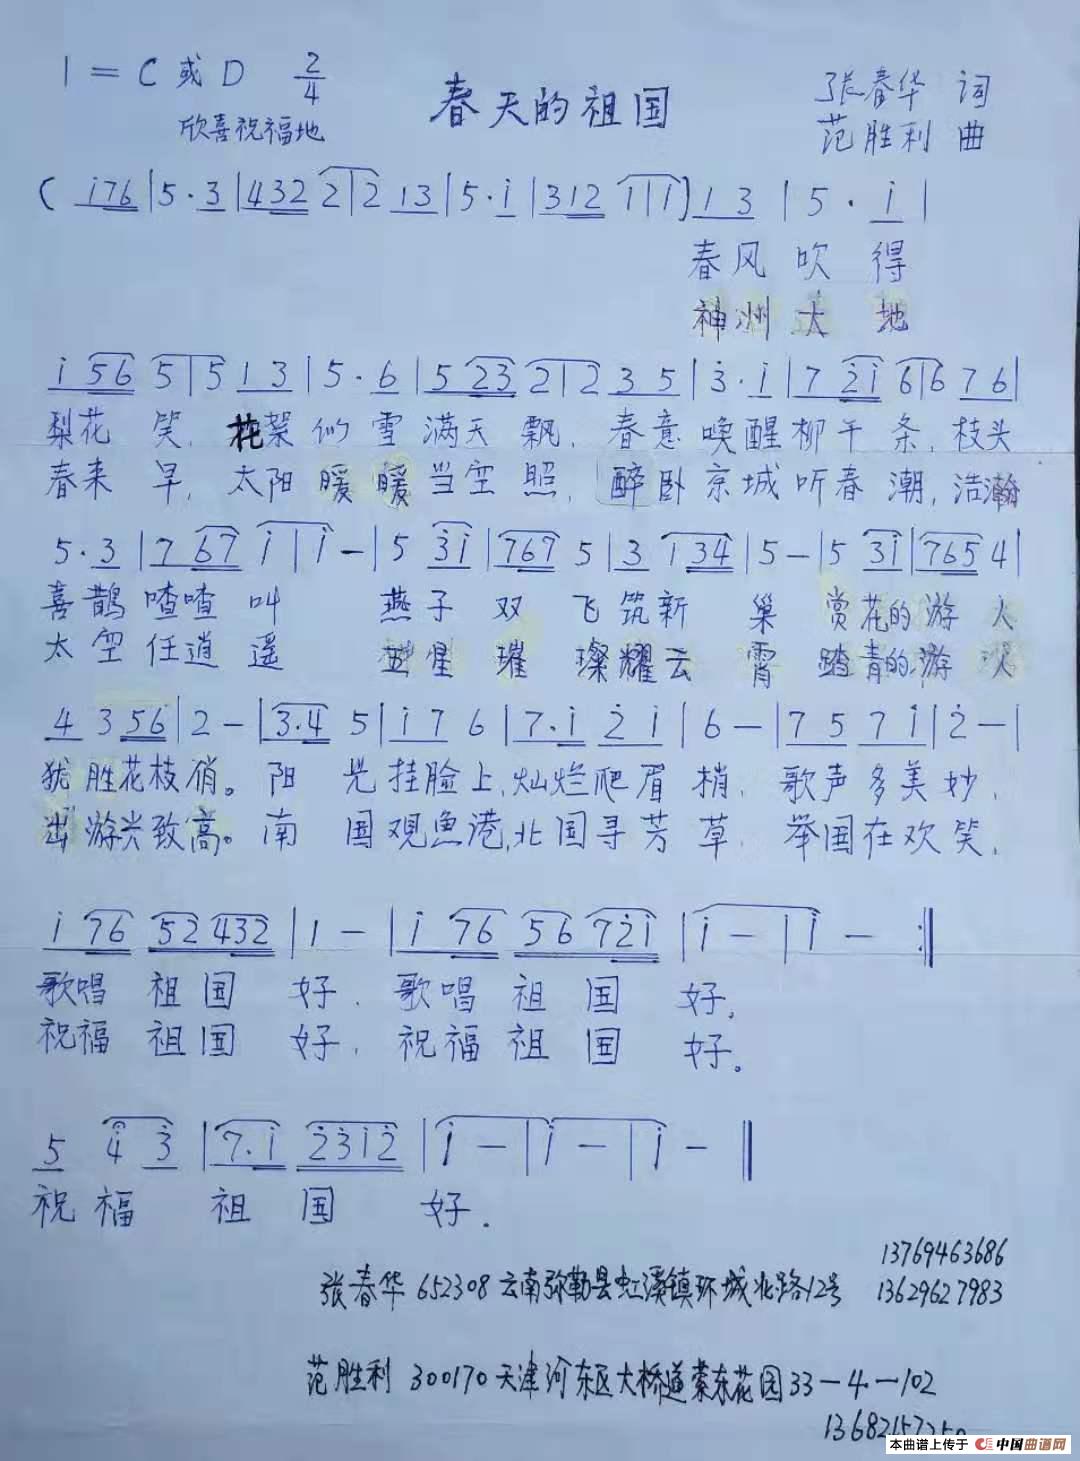 1=C或D 2/4
春天的祖国
张春华 词
欣喜祝福地
范胜利 曲
( i76|5·3|432 2|2 13|5·i|312 1|1) 13|5·i|
春风吹得
神洲大地
i 56 5|5 13|5·6|5 23 2|2 35|3·i|7 2i 6|6 76|
梨花笑,花絮似雪满天飘,春意唤醒柳千条,枝头
春来早,太阳暖暖当空照,醉卧京城听春潮,浩瀚
5·3|7 67 i|i-|5 3i|767 5|3 134|5-|5 3i|765 4|
喜鹊喳喳叫 燕子双飞筑新巢 赏花的游人
太空任逍遥 星璀璨耀云霄 踏青的游
4 3 56|2-|3·4 5|i 7 6|7·i 2 i|6-|7 5 7 i|2-|
犹胜花枝俏。阳光挂脸上,灿烂爬眉梢,歌声多美妙,
出游兴致高。南国观鱼港,北国寻芳草,举国在欢笑,
i 76 52 432|1-|i 76 56 72i|i-|i-:‖
歌唱祖国好,歌唱祖国好,
祝福祖国好,祝福祖国好。
5 4 3|7·i 2312|i-|i-|i-‖
祝福祖国好.
13769463686
张春华 652308 云南弥勒县虹溪镇环城北路12号 13629627983
范胜利 300170 天津河东区大桥道蒙东花园33-4-102
本曲谱上传于 中国曲谱网